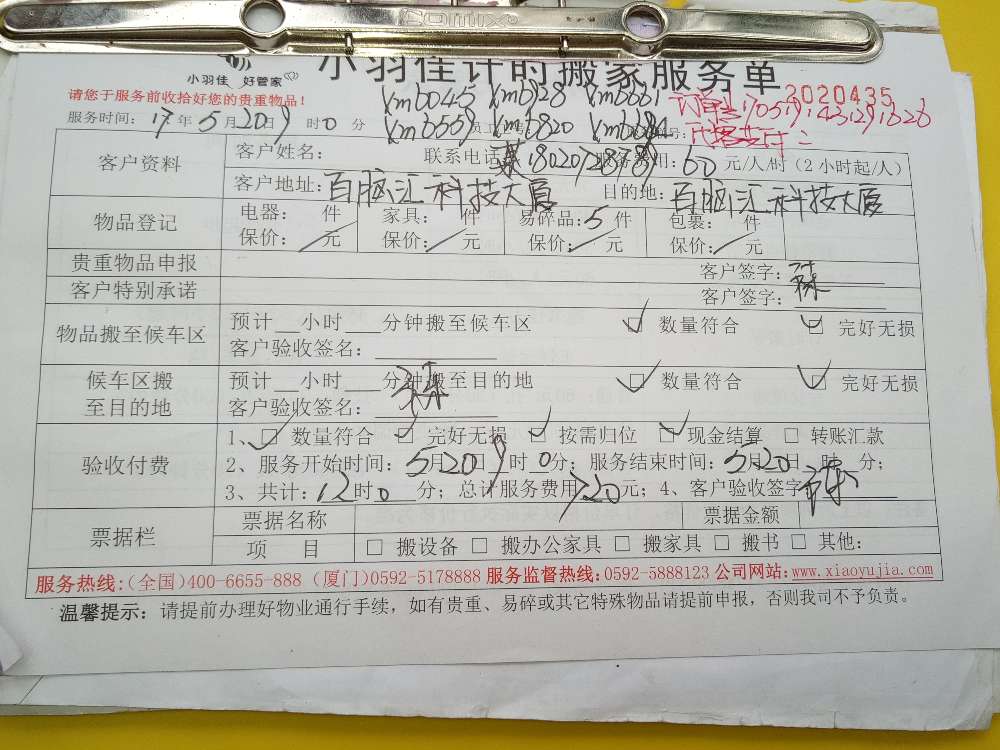 COMIX
小羽佳 好管家
小羽佳计时搬家服务单
请您于服务前收拾好您的贵重物品！
xmb045 xmb928 xmb661 2020435
服务时间：17年5月20日9时0分 xmb559 xmb820
客户资料
客户姓名： 联系电话 18020728789 服务费用：60元/人/时（2小时起/人）
客户地址：百脑汇科技大厦 目的地：百脑汇科技大厦
物品登记
电器： 件 家具： 件 易碎品：5件 包裹： 件
保价：／元 保价：／元 保价：／元 保价：／元
贵重物品申报 客户签字：
客户特别承诺 客户签字：
物品搬至候车区
预计__小时___分钟搬至候车区 ☑ 数量符合 ☑ 完好无损
客户验收签名：
候车区搬至目的地
预计__小时___分钟搬至目的地 ☑ 数量符合 ☑ 完好无损
客户验收签名：
验收付费
1、☑ 数量符合 ☑ 完好无损 ☑ 按需归位 ☑ 现金结算 □ 转账汇款
2、服务开始时间：5月20日9时0分；服务结束时间：5月20日 时 分；
3、共计：12时0分；总计服务费用720元；4、客户验收签字
票据栏
票据名称 票据金额
项 目 □ 搬设备 □ 搬办公家具 □ 搬家具 □ 搬书 □ 其他：
服务热线：（全国）400-6655-888（厦门）0592-5178888 服务监督热线：0592-5888123 公司网站：www.xiaoyujia.com
温馨提示：请提前办理好物业通行手续，如有贵重、易碎或其它特殊物品请提前申报，否则我司不予负责。